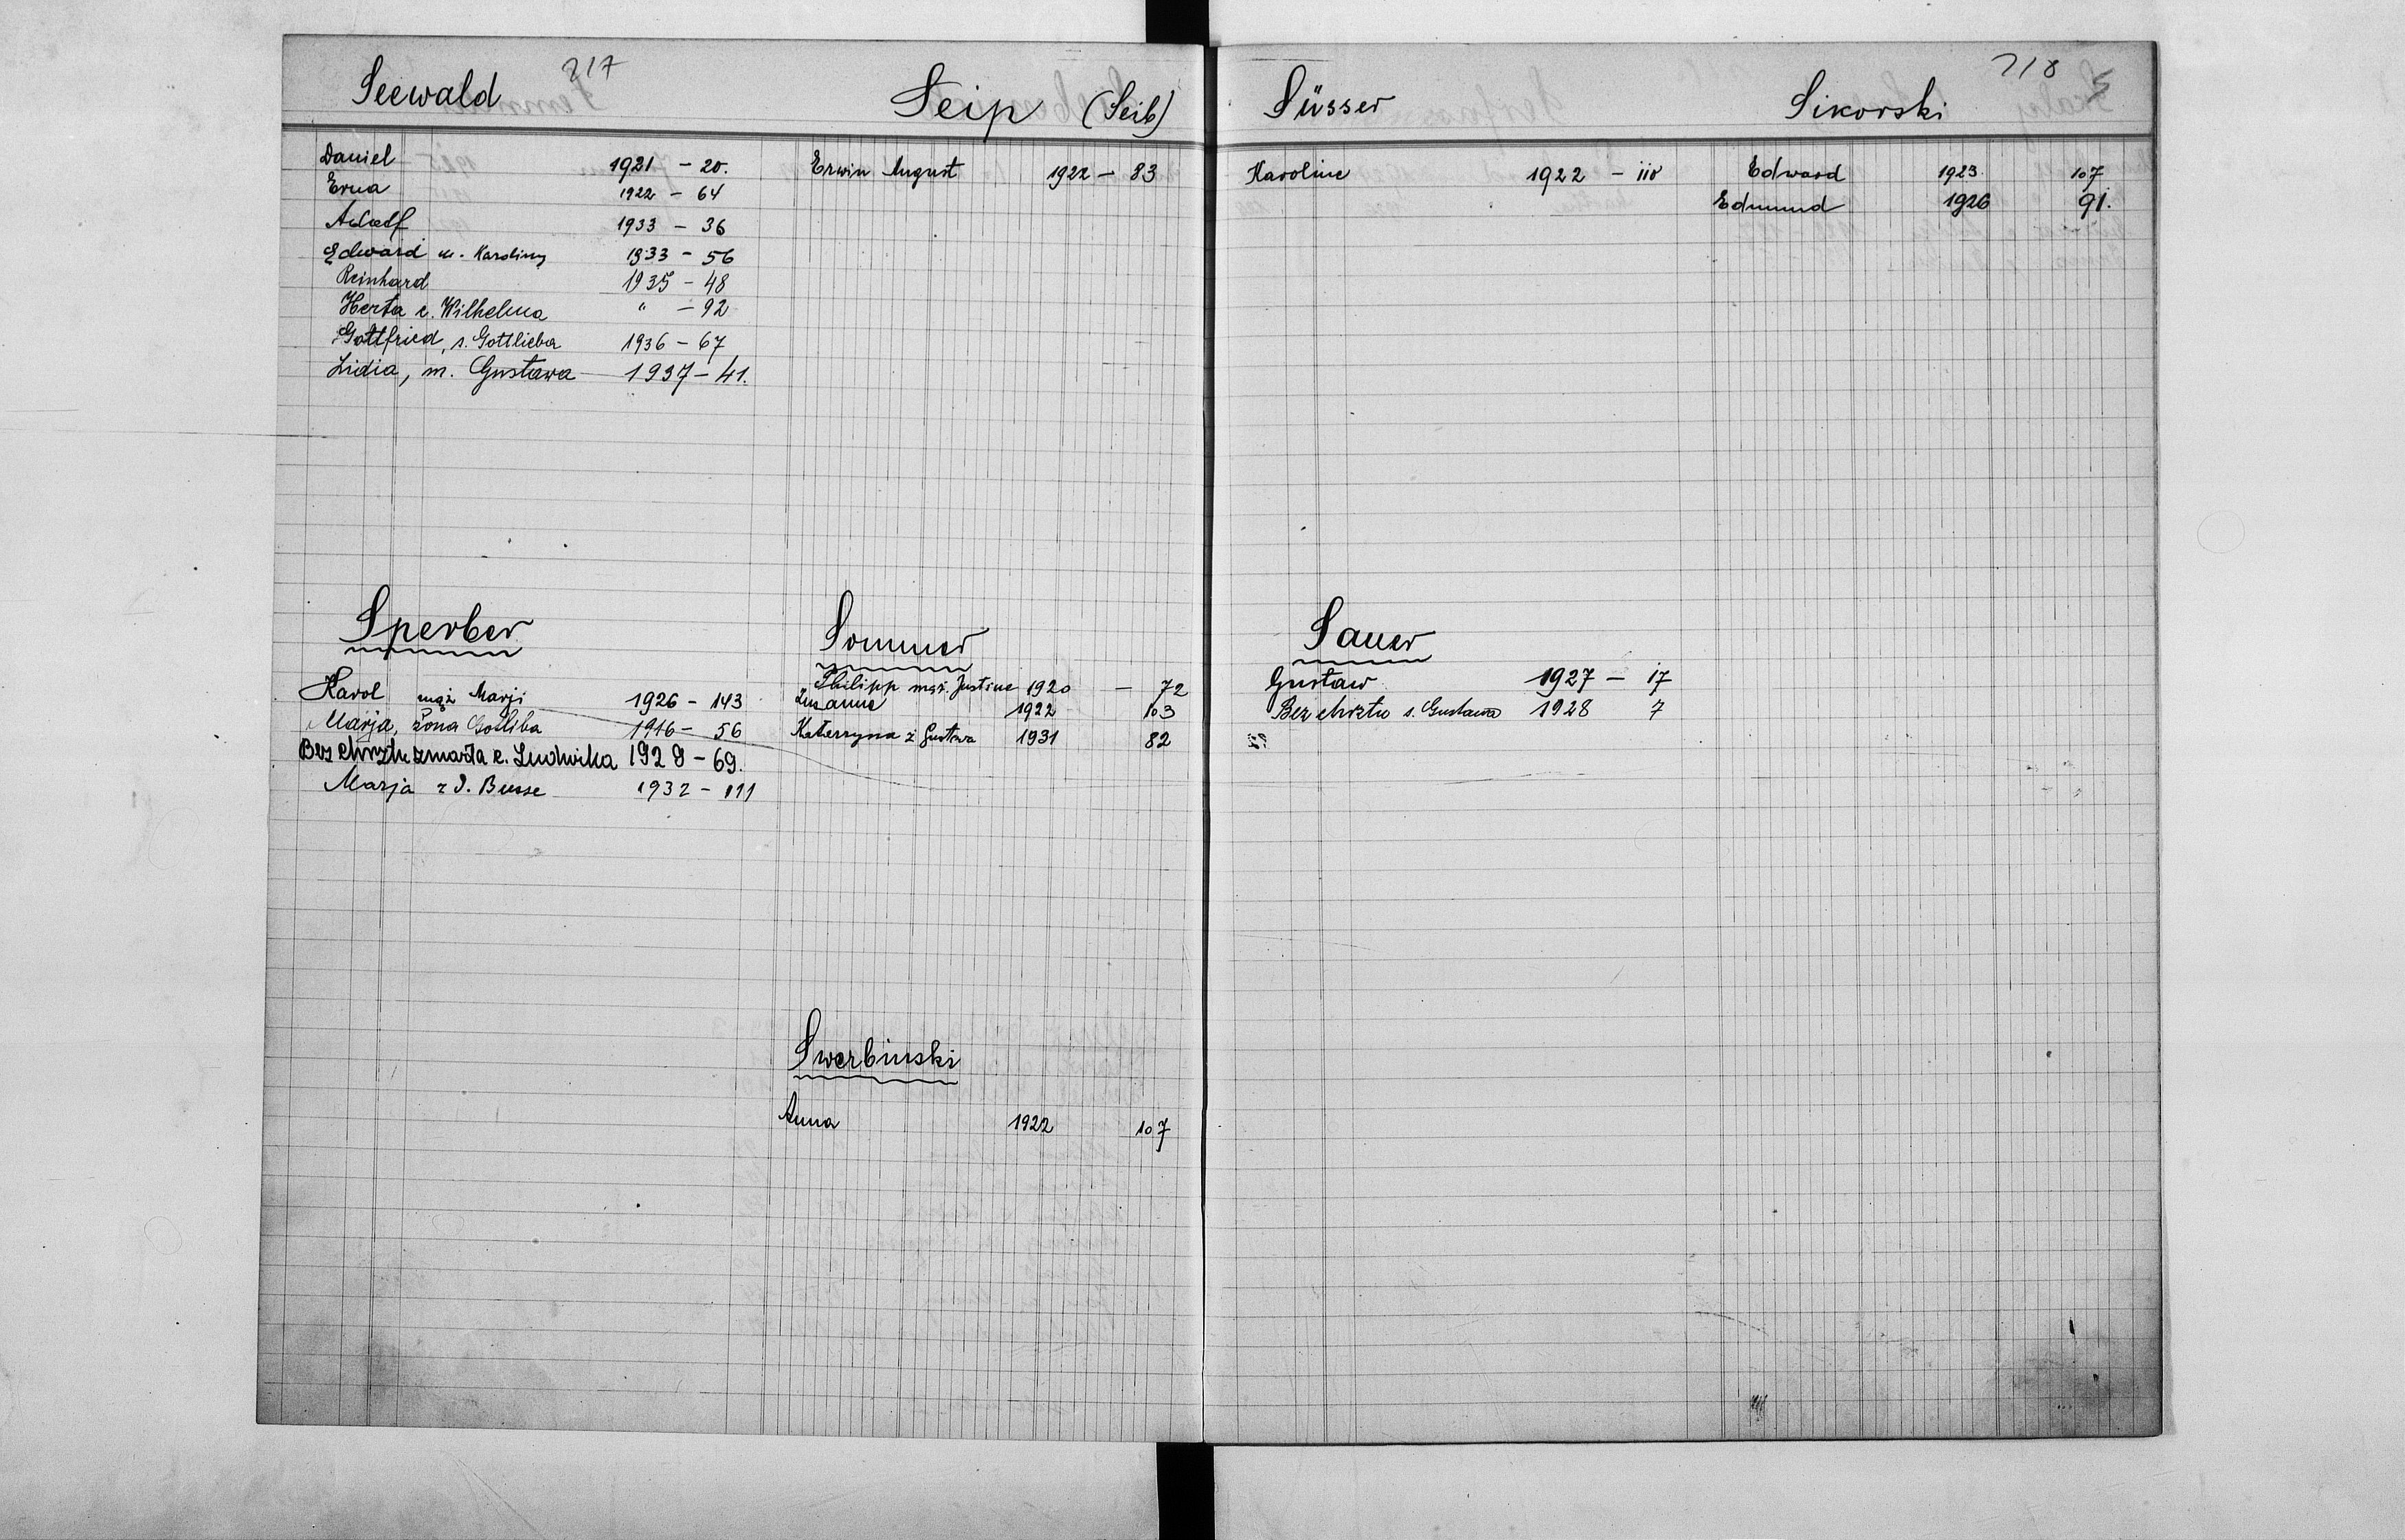 217
Seewald
Daniel 1921 - 20.
Erna 1922 - 64
Adolf 1933 - 36
Edward m. Karoliny 1933 - 56
Reinhard 1935 - 48
Herta c. Wilhelma " - 92
Gottfried, s. Gottlieba 1936 - 67
Lidia, m. Gustawa 1937 - 41.
Seip (Seib)
Erwin August 1922 - 83
Sperber
Karol mąż Marji 1926 - 143
Marja, żona Gotliba 1916 - 56
Bez chrztu zmarła c. Ludwika 1928 - 69.
Marja z d. Busse 1932 - 111
Sommer
Philipp mąż. Justine 1920 - 72
Susanne 1922 103
Katarzyna ż Gustawa 1931 82
Swerbinski
Anna 1922 107
218
Süsser
Karoline 1922 - 110
Sikorski
Edward 1923 107
Edmund 1926 91.
Sauer
Gustaw 1927 - 17
Bez chrztu s. Gustawa 1928 7